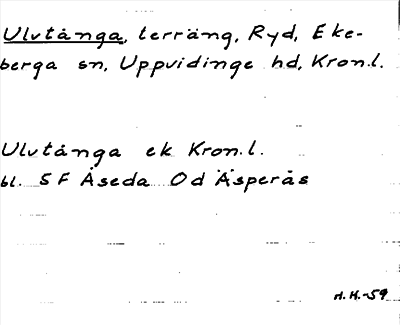 Ulvtånga, terräng, Ryd, Eke-
berga sn, Uppvidinge hd, Kron.l.
Ulvtånga ek Kron.l.
bl. 5F Åseda 0d Äsperås
H.H.-59